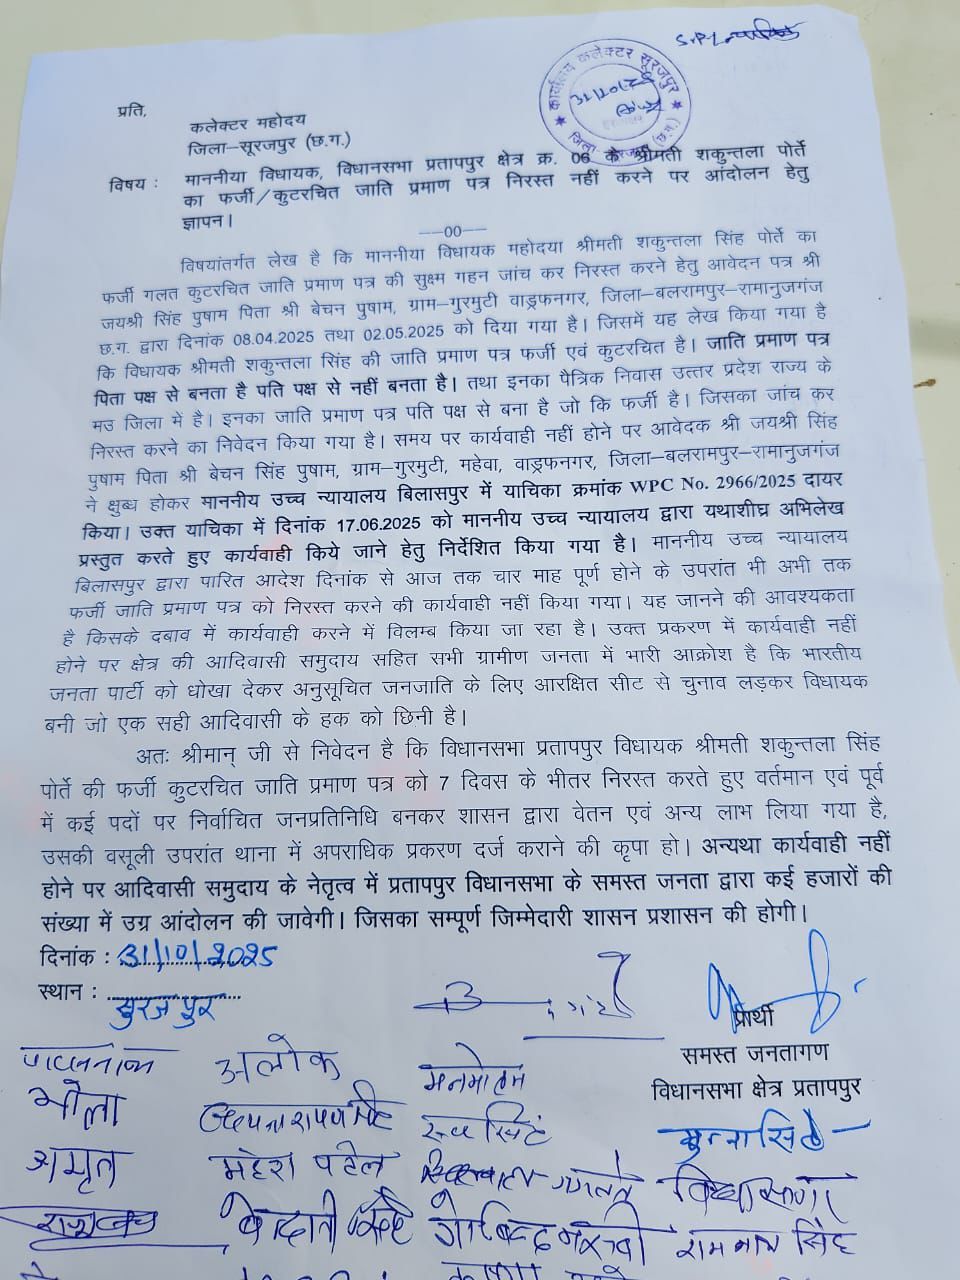 कार्यालय कलेक्टर सूरजपुर
जिला-सूरजपुर (छ.ग.)
प्रति,
कलेक्टर महोदय
जिला–सूरजपुर (छ.ग.)
विषय : माननीया विधायक, विधानसभा प्रतापपुर क्षेत्र क्र. 06 के श्रीमती शकुन्तला पोर्ते
का फर्जी/कुटरचित जाति प्रमाण पत्र निरस्त नहीं करने पर आंदोलन हेतु
ज्ञापन।
––00––
विषयांतर्गत लेख है कि माननीया विधायक महोदया श्रीमती शकुन्तला सिंह पोर्ते का
फर्जी गलत कुटरचित जाति प्रमाण पत्र की सुक्ष्म गहन जांच कर निरस्त करने हेतु आवेदन पत्र श्री
जयश्री सिंह पुषाम पिता श्री बेचन पुषाम, ग्राम–गुरमुटी वाड्रफनगर, जिला–बलरामपुर–रामानुजगंज
छ.ग. द्वारा दिनांक 08.04.2025 तथा 02.05.2025 को दिया गया है। जिसमें यह लेख किया गया है
कि विधायक श्रीमती शकुन्तला सिंह की जाति प्रमाण पत्र फर्जी एवं कुटरचित है। जाति प्रमाण पत्र
पिता पक्ष से बनता है पति पक्ष से नहीं बनता है। तथा इनका पैत्रिक निवास उत्तर प्रदेश राज्य के
मउ जिला में है। इनका जाति प्रमाण पत्र पति पक्ष से बना है जो कि फर्जी है। जिसका जांच कर
निरस्त करने का निवेदन किया गया है। समय पर कार्यवाही नहीं होने पर आवेदक श्री जयश्री सिंह
पुषाम पिता श्री बेचन सिंह पुषाम, ग्राम–गुरमुटी, महेवा, वाड्रफनगर, जिला–बलरामपुर–रामानुजगंज
ने क्षुब्ध होकर माननीय उच्च न्यायालय बिलासपुर में याचिका क्रमांक WPC No. 2966/2025 दायर
किया। उक्त याचिका में दिनांक 17.06.2025 को माननीय उच्च न्यायालय द्वारा यथाशीघ्र अभिलेख
प्रस्तुत करते हुए कार्यवाही किये जाने हेतु निर्देशित किया गया है। माननीय उच्च न्यायालय
बिलासपुर द्वारा पारित आदेश दिनांक से आज तक चार माह पूर्ण होने के उपरांत भी अभी तक
फर्जी जाति प्रमाण पत्र को निरस्त करने की कार्यवाही नहीं किया गया। यह जानने की आवश्यकता
है किसके दबाव में कार्यवाही करने में विलम्ब किया जा रहा है। उक्त प्रकरण में कार्यवाही नहीं
होने पर क्षेत्र की आदिवासी समुदाय सहित सभी ग्रामीण जनता में भारी आक्रोश है कि भारतीय
जनता पार्टी को धोखा देकर अनुसूचित जनजाति के लिए आरक्षित सीट से चुनाव लड़कर विधायक
बनी जो एक सही आदिवासी के हक को छिनी है।
अतः श्रीमान् जी से निवेदन है कि विधानसभा प्रतापपुर विधायक श्रीमती शकुन्तला सिंह
पोर्ते की फर्जी कुटरचित जाति प्रमाण पत्र को 7 दिवस के भीतर निरस्त करते हुए वर्तमान एवं पूर्व
में कई पदों पर निर्वाचित जनप्रतिनिधि बनकर शासन द्वारा वेतन एवं अन्य लाभ लिया गया है,
उसकी वसूली उपरांत थाना में अपराधिक प्रकरण दर्ज कराने की कृपा हो। अन्यथा कार्यवाही नहीं
होने पर आदिवासी समुदाय के नेतृत्व में प्रतापपुर विधानसभा के समस्त जनता द्वारा कई हजारों की
संख्या में उग्र आंदोलन की जावेगी। जिसका सम्पूर्ण जिम्मेदारी शासन प्रशासन की होगी।
दिनांक : 31/10/2025
स्थान : सुरजपुर
प्रार्थी
समस्त जनतागण
विधानसभा क्षेत्र प्रतापपुर
अलोक मनमोहन
भोला मुन्ना सिंह
अमृत महेश पटेल
गोबिन्द रामनाथ सिंह